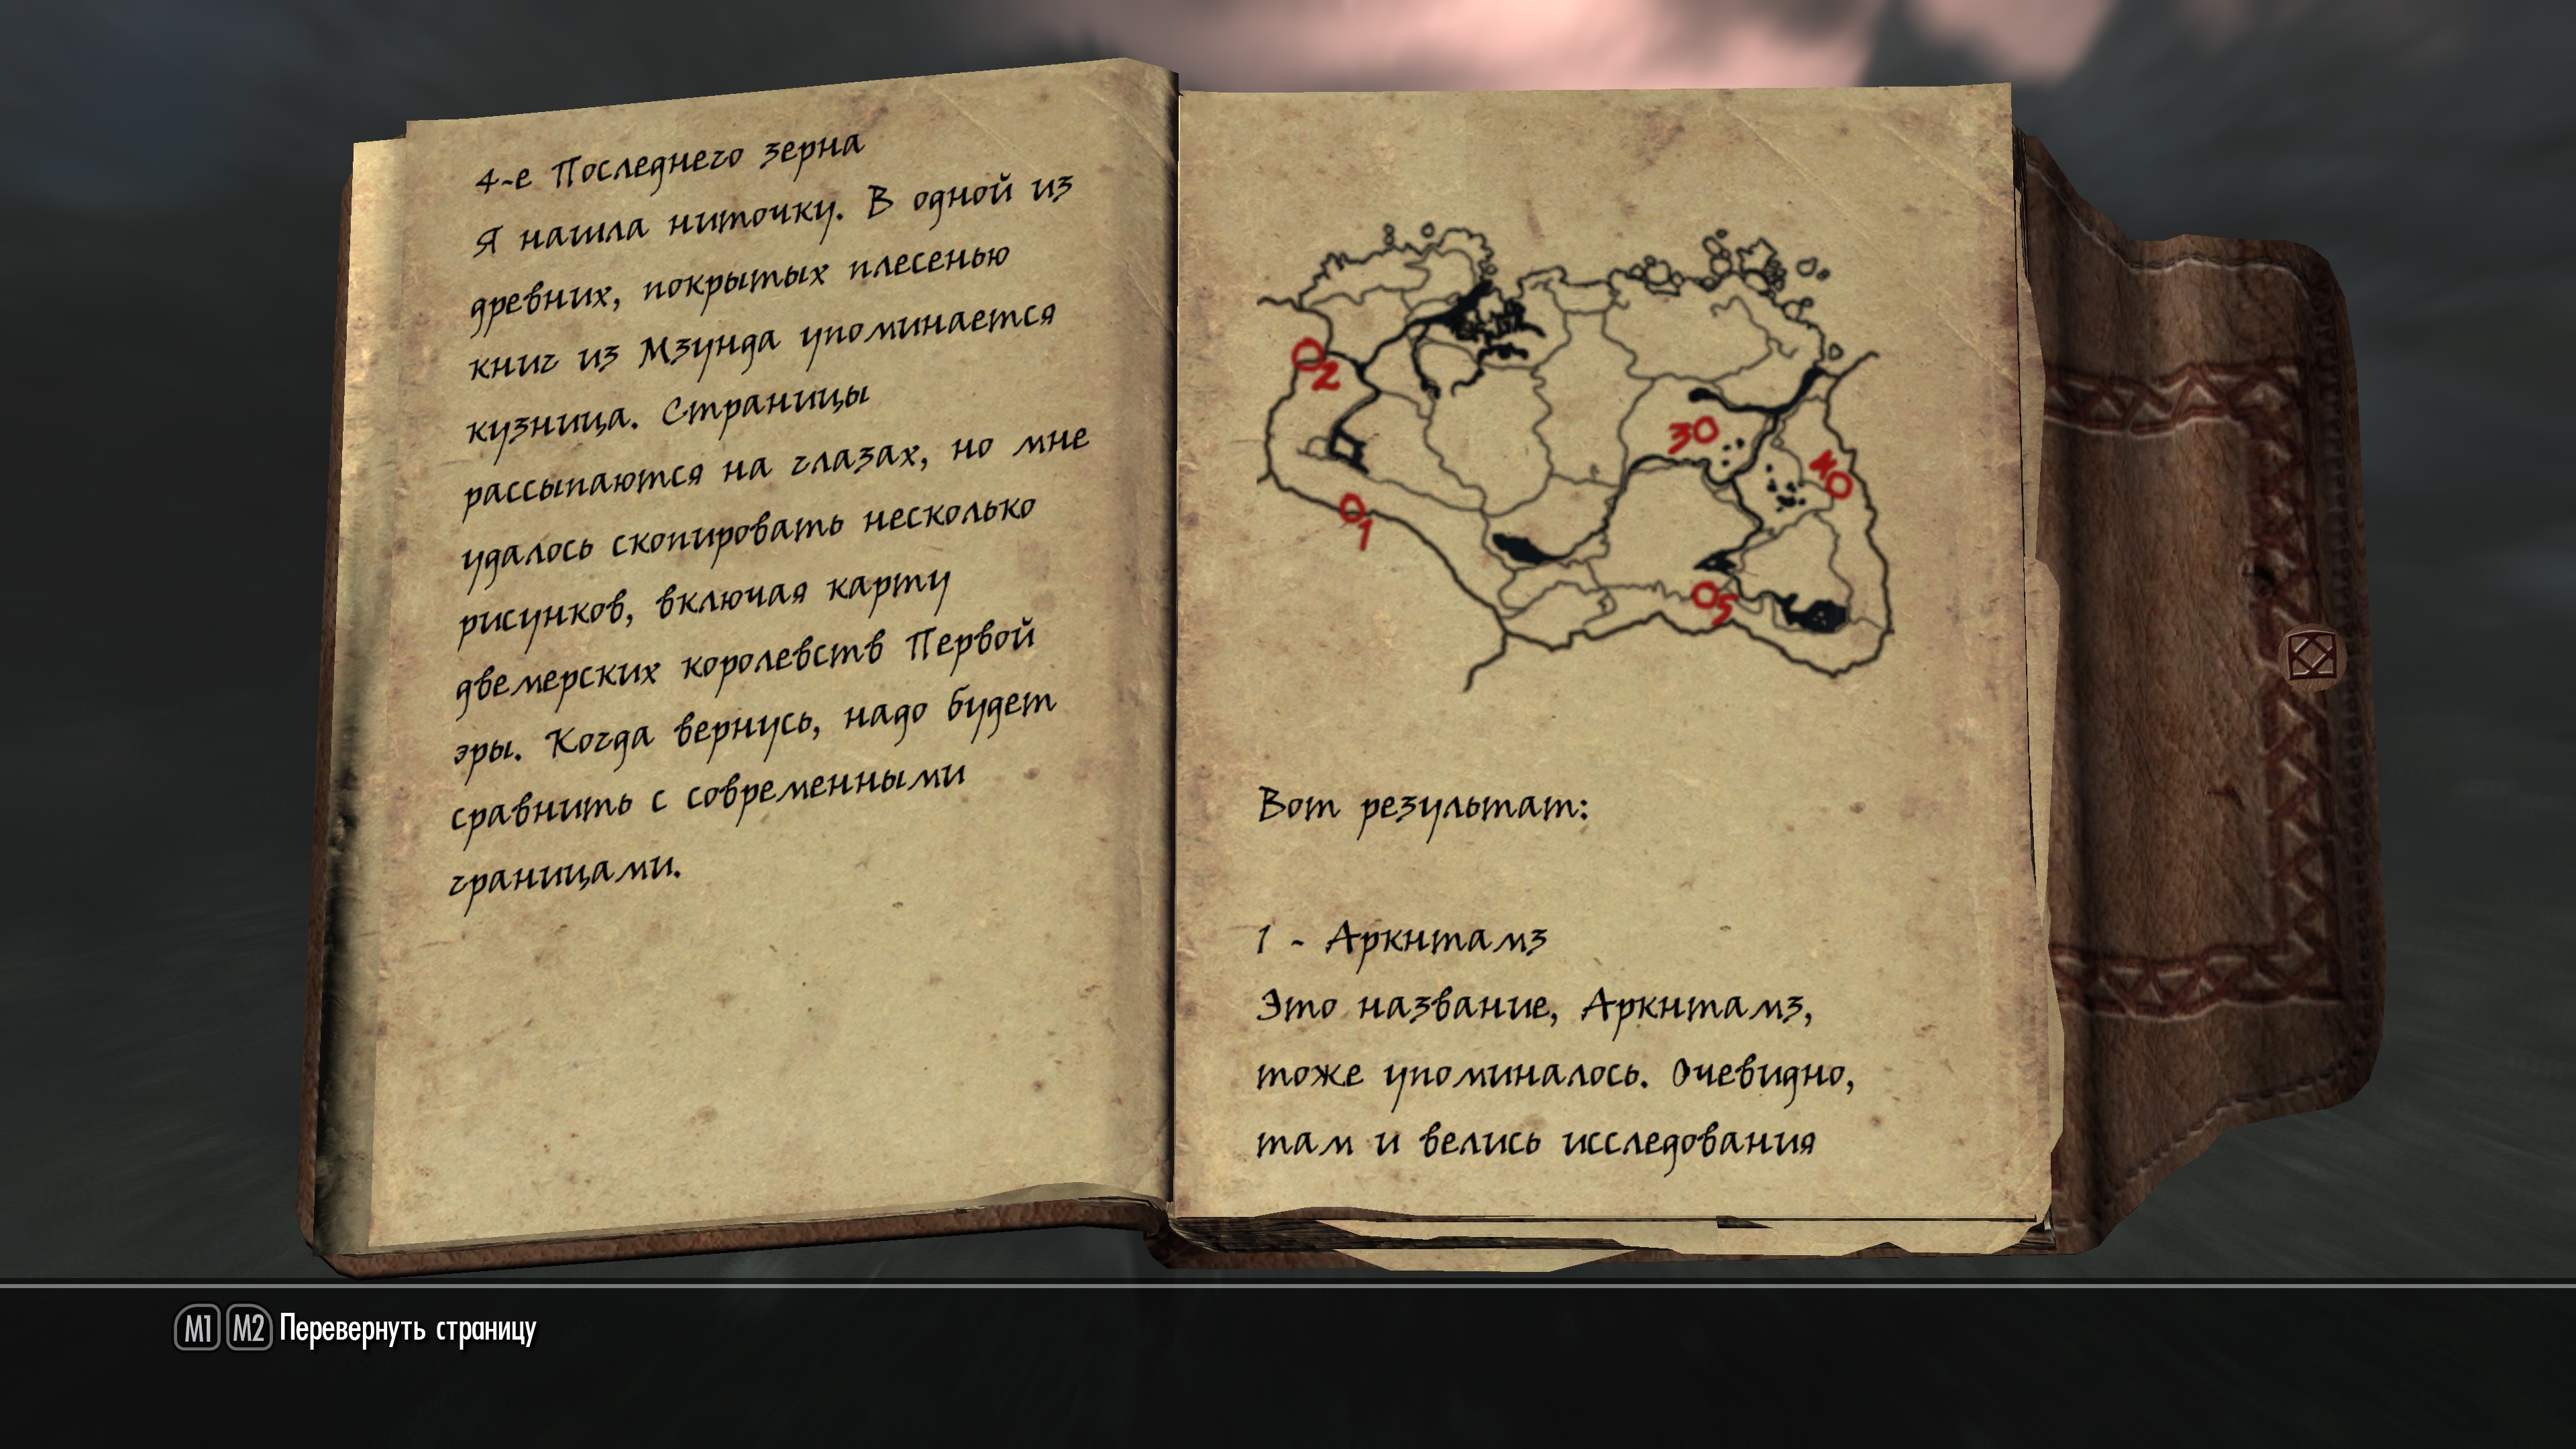 4-е Последнего зерна
Я нашла ниточку. В одной из
древних, покрытых плесенью
книг из Мзунда упоминается
кузница. Страницы
рассыпаются на глазах, но мне
удалось скопировать несколько
рисунков, включая карту
двемерских королевств Первой
эры. Когда вернусь, надо будет
сравнить с современными
границами.
2
3
4
1
5
Вот результат:
1 - Аркнтамз
Это название, Аркнтамз,
тоже упоминалось. Очевидно,
там и велись исследования
M1 M2 Перевернуть страницу